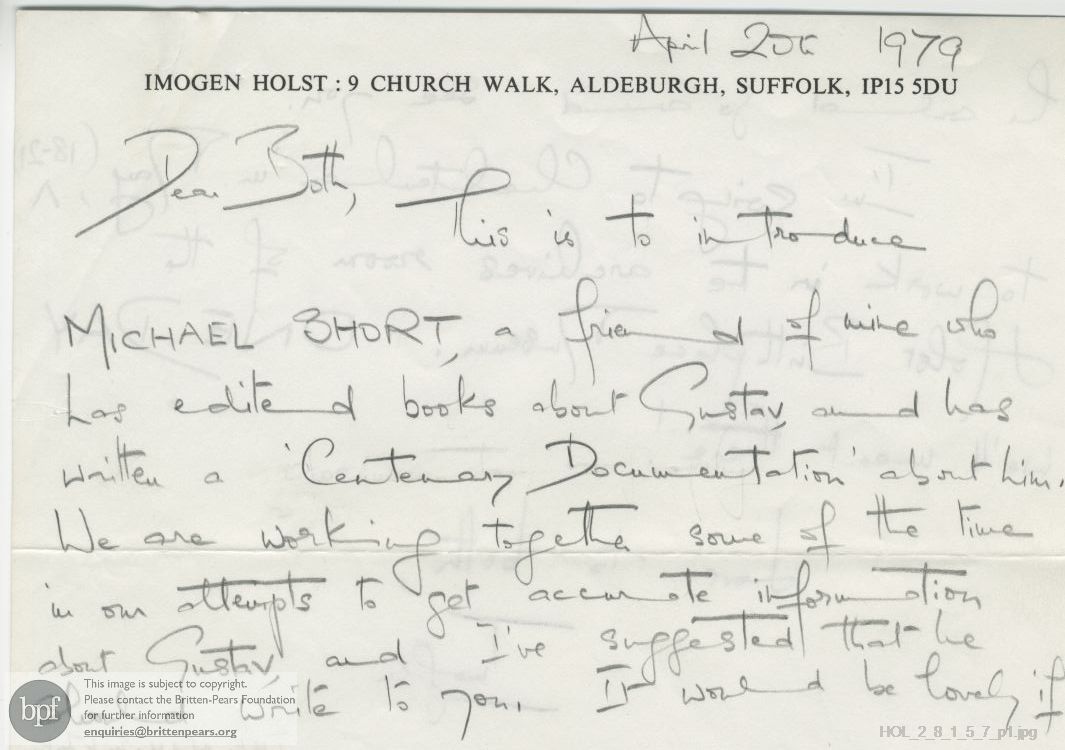 April 20th 1979
IMOGEN HOLST : 9 CHURCH WALK, ALDEBURGH, SUFFOLK, IP15 5DU
Dear Both,
This is to introduce
MICHAEL SHORT, a friend of mine who
has edited books about Gustav, and has
written a 'Centenary Documentation' about him.
We are working together some of the time
in our attempts to get accurate information
about Gustav, and I've suggested that he
should write to you. It would be lovely if
bpf
This image is subject to copyright.
Please contact the Britten-Pears Foundation
for further information
enquiries@brittenpears.org
HOL_2_8_1_5_7_p1.jpg